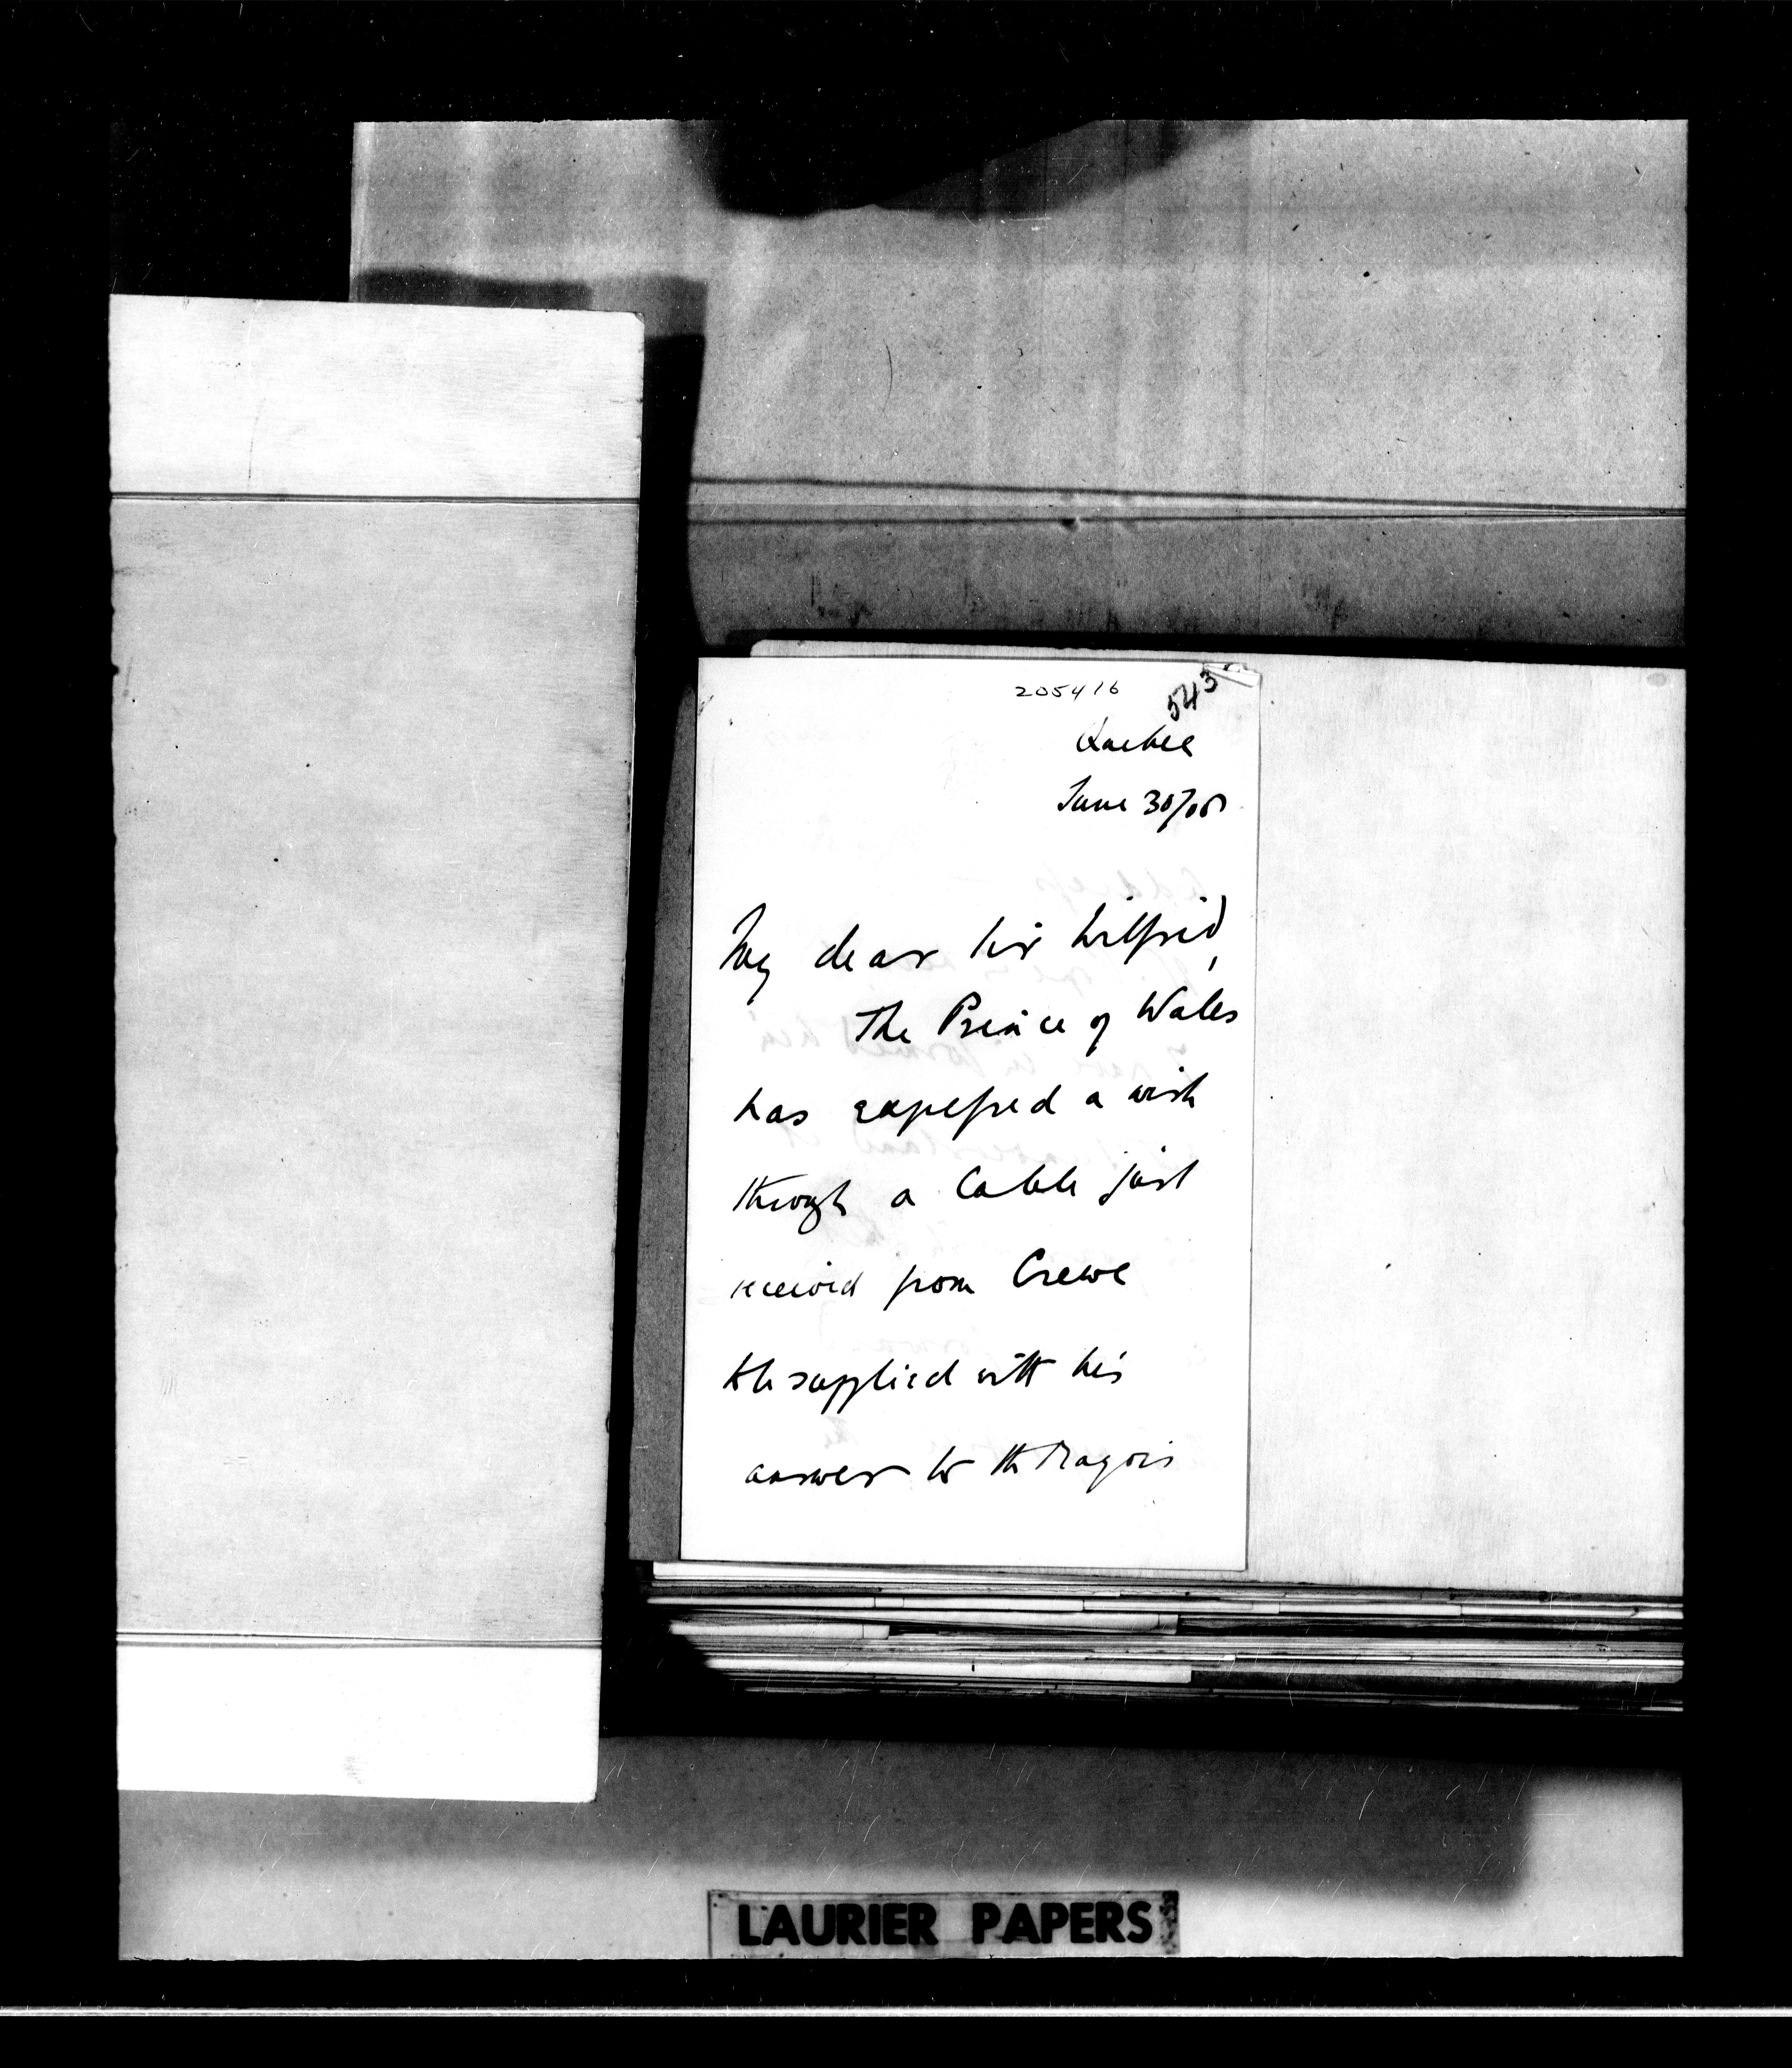 205416
543
Quebec
June 30/08
My dear Sir Wilfrid,
The Prince of Wales
has expressed a wish
through a Cable just
received from Crewe
to be supplied with his
answer to the Mayor's
LAURIER PAPERS